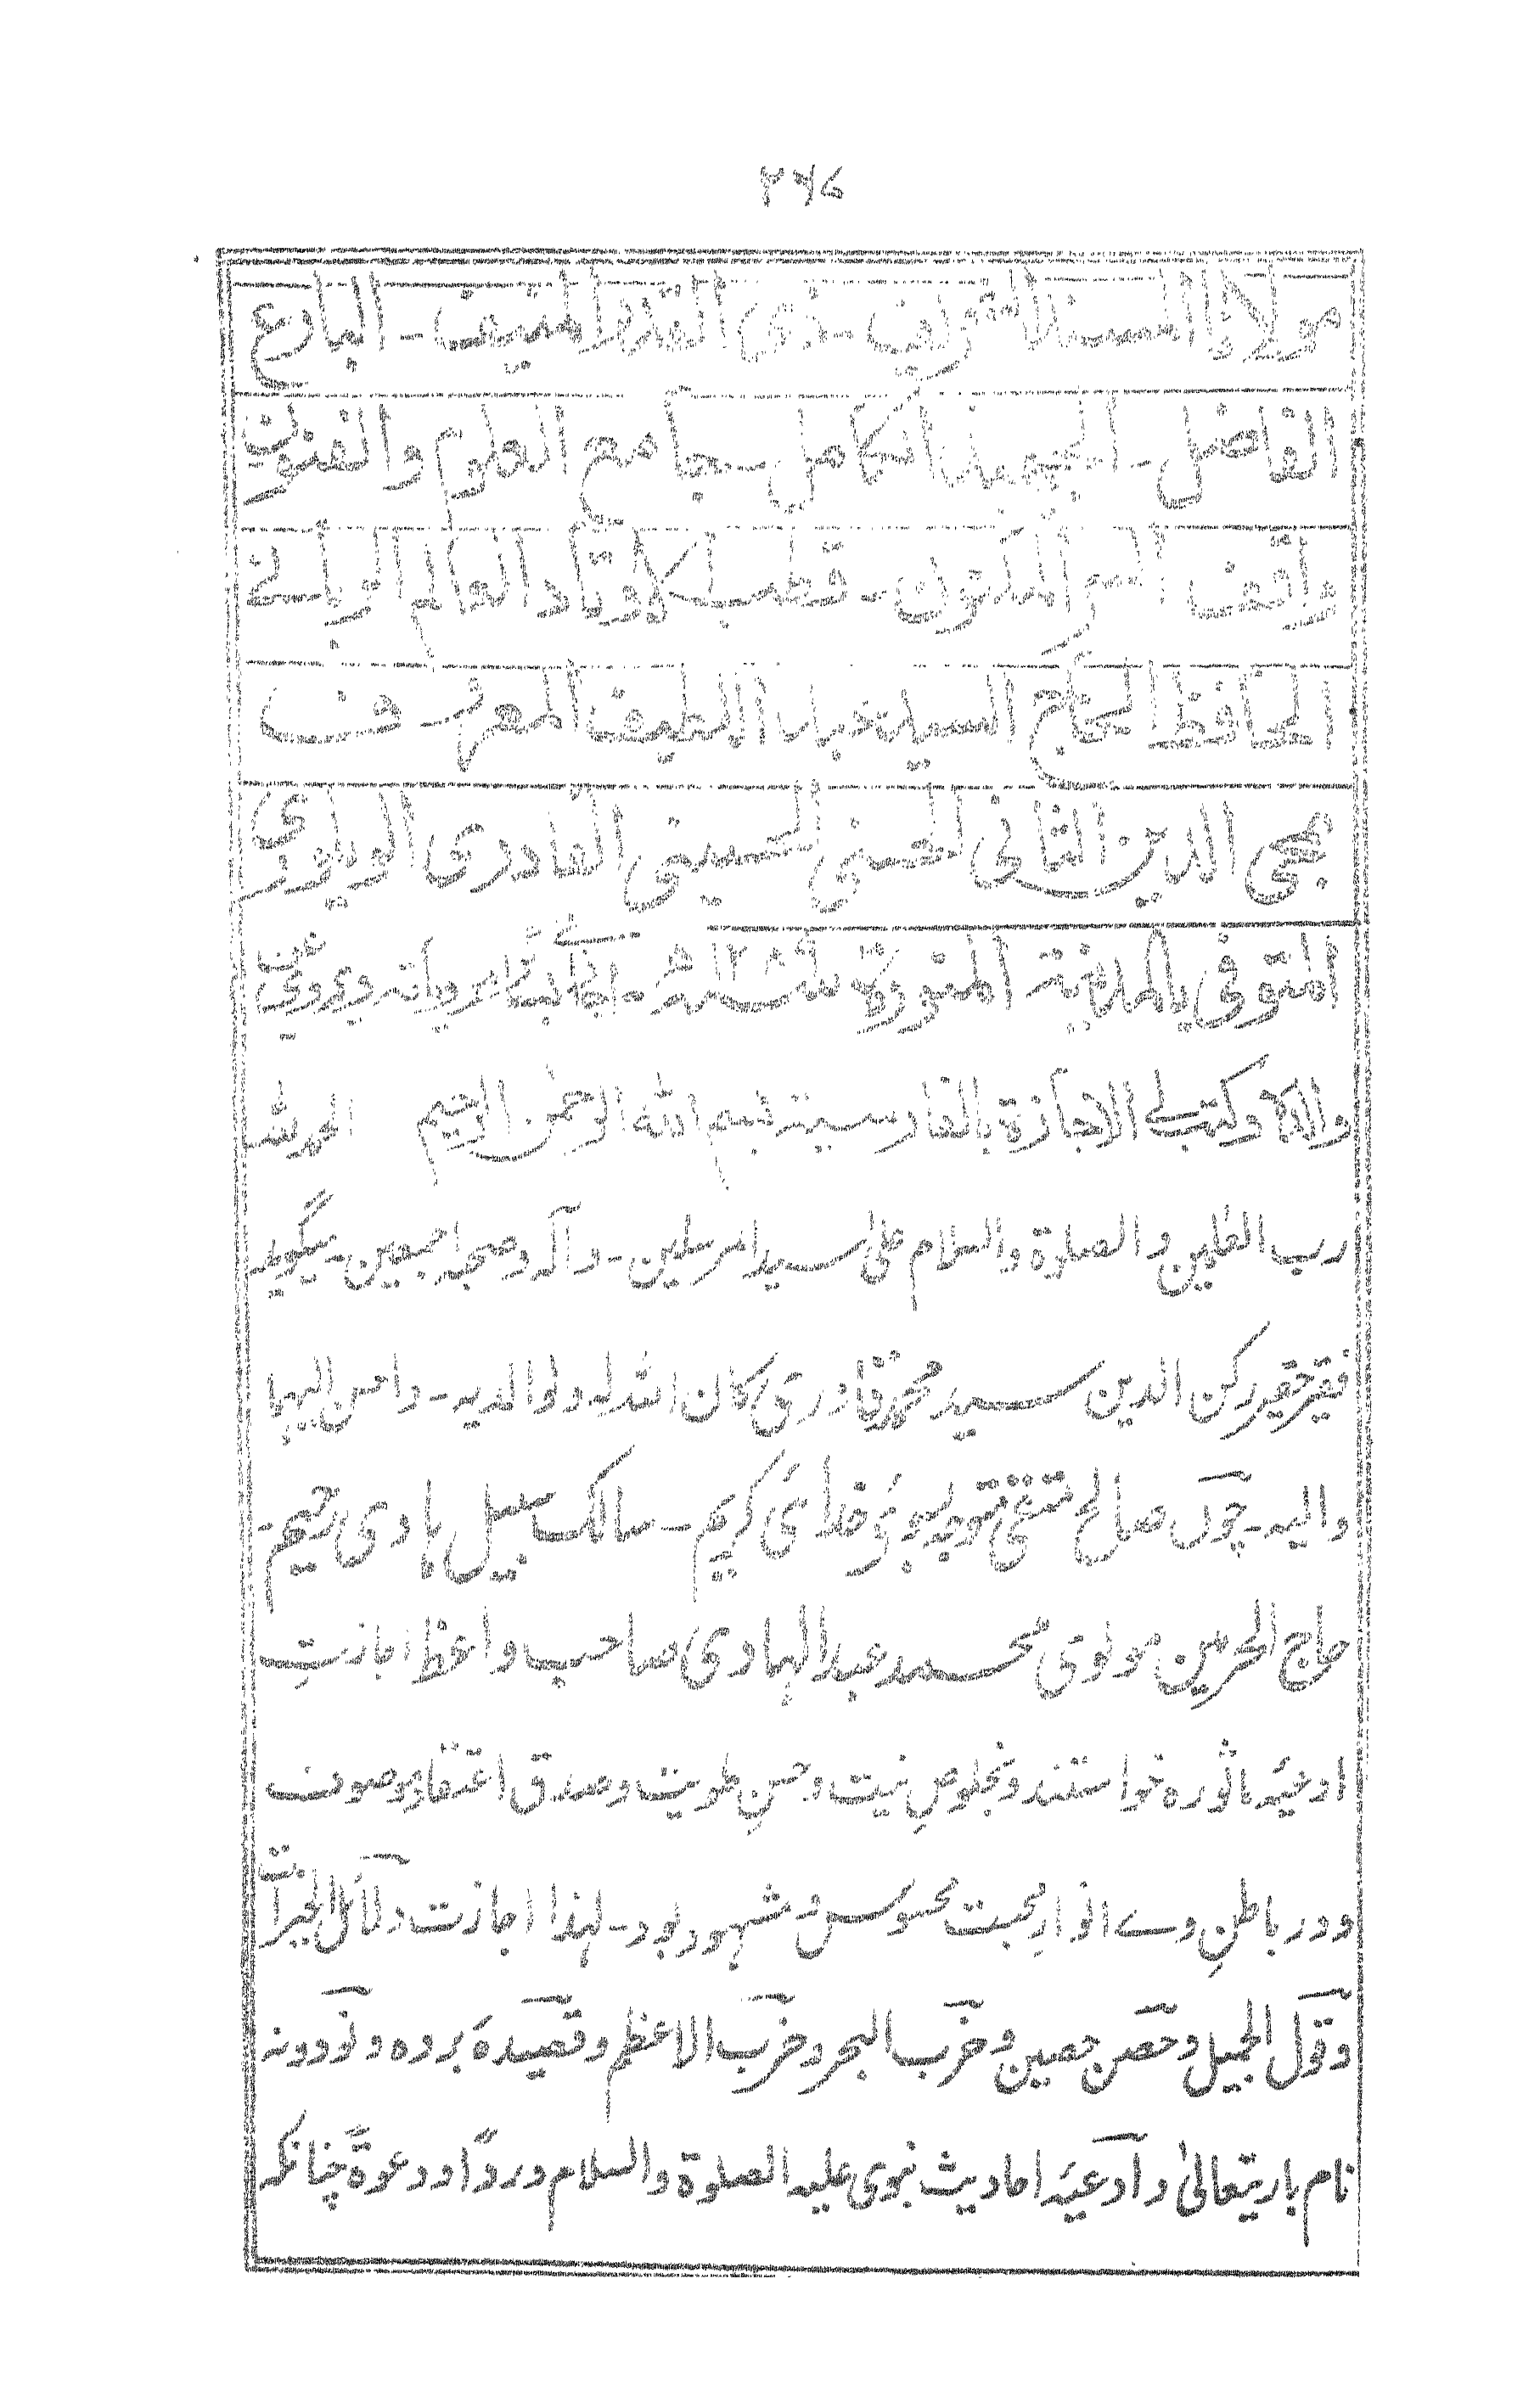 ۲۶۷
مولانا السند الشریف - ذی القدر المنیف - البارع
الفاضل - الجهبذ الکامل - جامع العلوم والفنون
واقف السر المکنون - قطب الاوتاد العالم الربانے
الحافظ الحاج السید عبد اللطیف المعروف
بمحی الدین الثانی الحسنی الحسینی القادری الویلوری
المتوفی بالمدینة المنورة ۱۲۸۹ سنه ھ - عن
والدہ وکتب لے الاجازة بالفارسیة بسم الله الرحمن الرحیم الحمد لله
رب العٰلمین و الصلوة والسلام علیٰ سید المرسلین - و آله و صحبه اجمعین - میگوید
فقیر حقیر رکن الدین سید محمد قادری کان الله له ولوالدیه - واحسن الیهما
والیه - چوں صالح متقی متوجہ بسوئے خدائی کریم - سالک سبیل ہادی رحیم -
حاج الحرمین مولوی محمد عبدالہادی صاحب واعظ اجازتِ
ادعیۂ ماثورہ خواستند و بخلوصِ نیت و حسنِ طویت و صدق اعتقاد موصوف
و در باطنِ وے انوارِ محبت محسوس و مشہود بود - لہٰذا اجازت دلائل الخیرات
و قول الجمیل و حصن حصین و حزب البحر و حزب الاعظم و قصیدۂ بردہ و نود و نہ
نام باریتعالیٰ و ادعیۂ احادیث نبوی علیه الصلوة والسلام وردًا و دعوةً چنانکہ